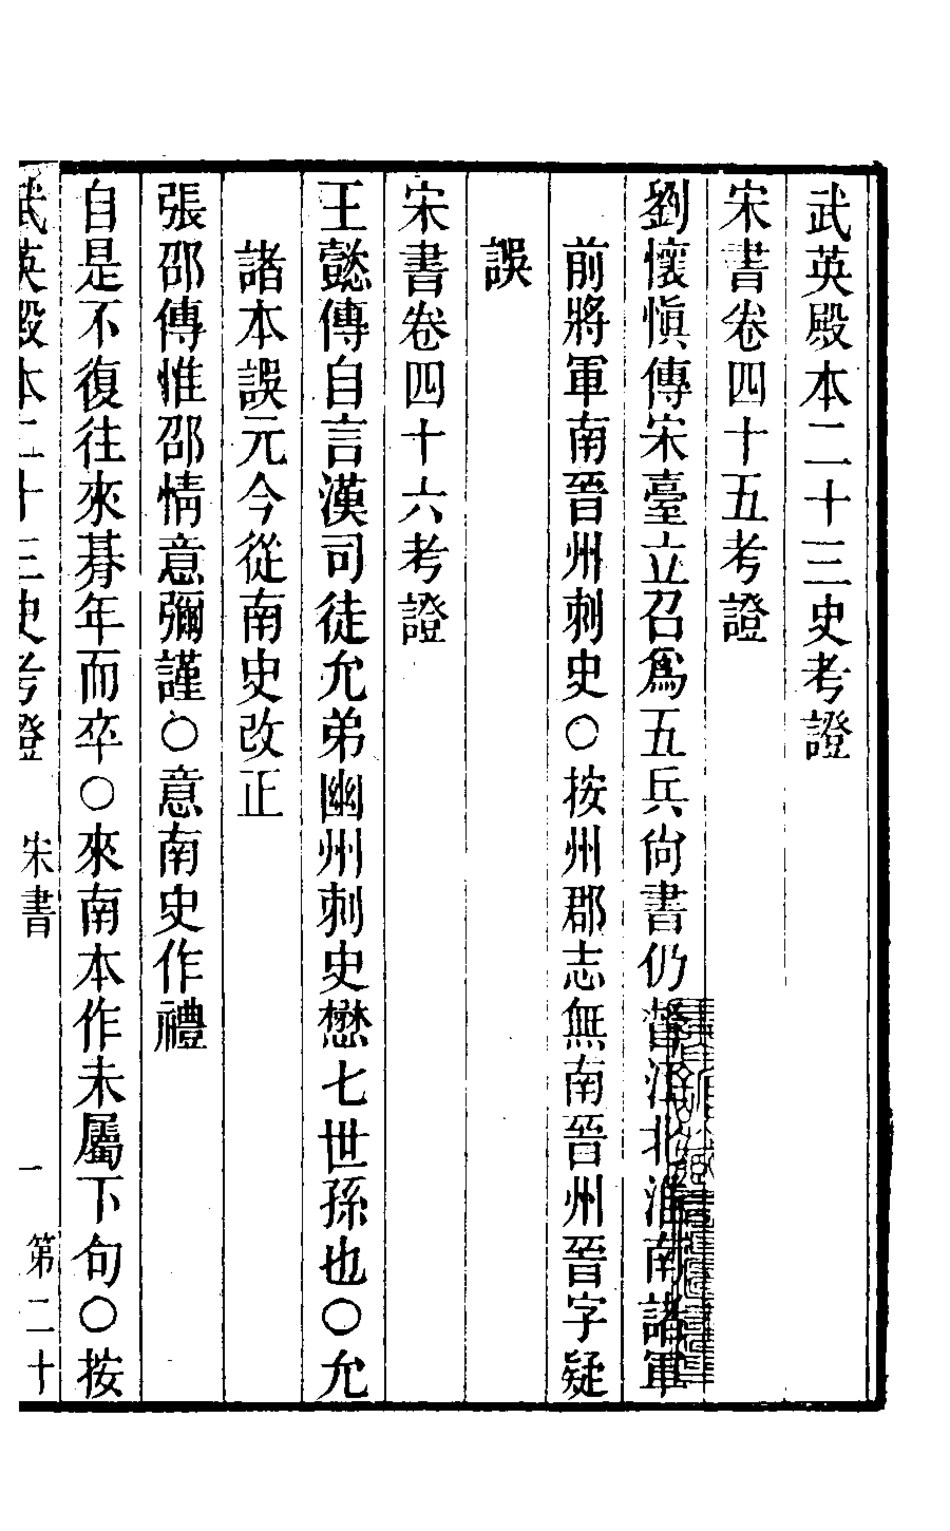 武英殿本二十三史考證
宋書卷四十五考證
劉懷愼傳宋臺立召爲五兵尙書仍督江北淮南諸軍
前將軍南晉州刺史○按州郡志無南晉州晉字疑
誤
宋書卷四十六考證
王懿傳自言漢司徒允弟幽州刺史懋七世孫也○允
諸本誤元今從南史改正
張邵傳惟邵情意彌謹○意南史作禮
自是不復往來朞年而卒○來南本作未屬下句○按
武英殿本二十三史考證 宋書 一 第二十